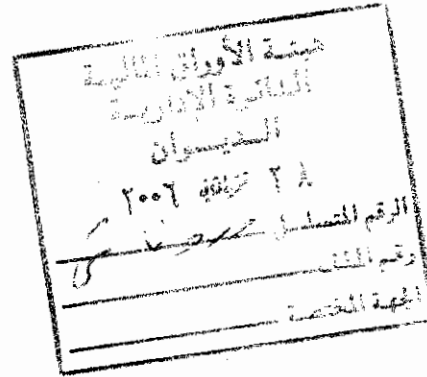 هيئة الأوراق المالية
الدائرة الإدارية
الديوان
٢٠٠٦ ٢٨
الرقم المتسلسل
رقم الملف
الجهة المختصة